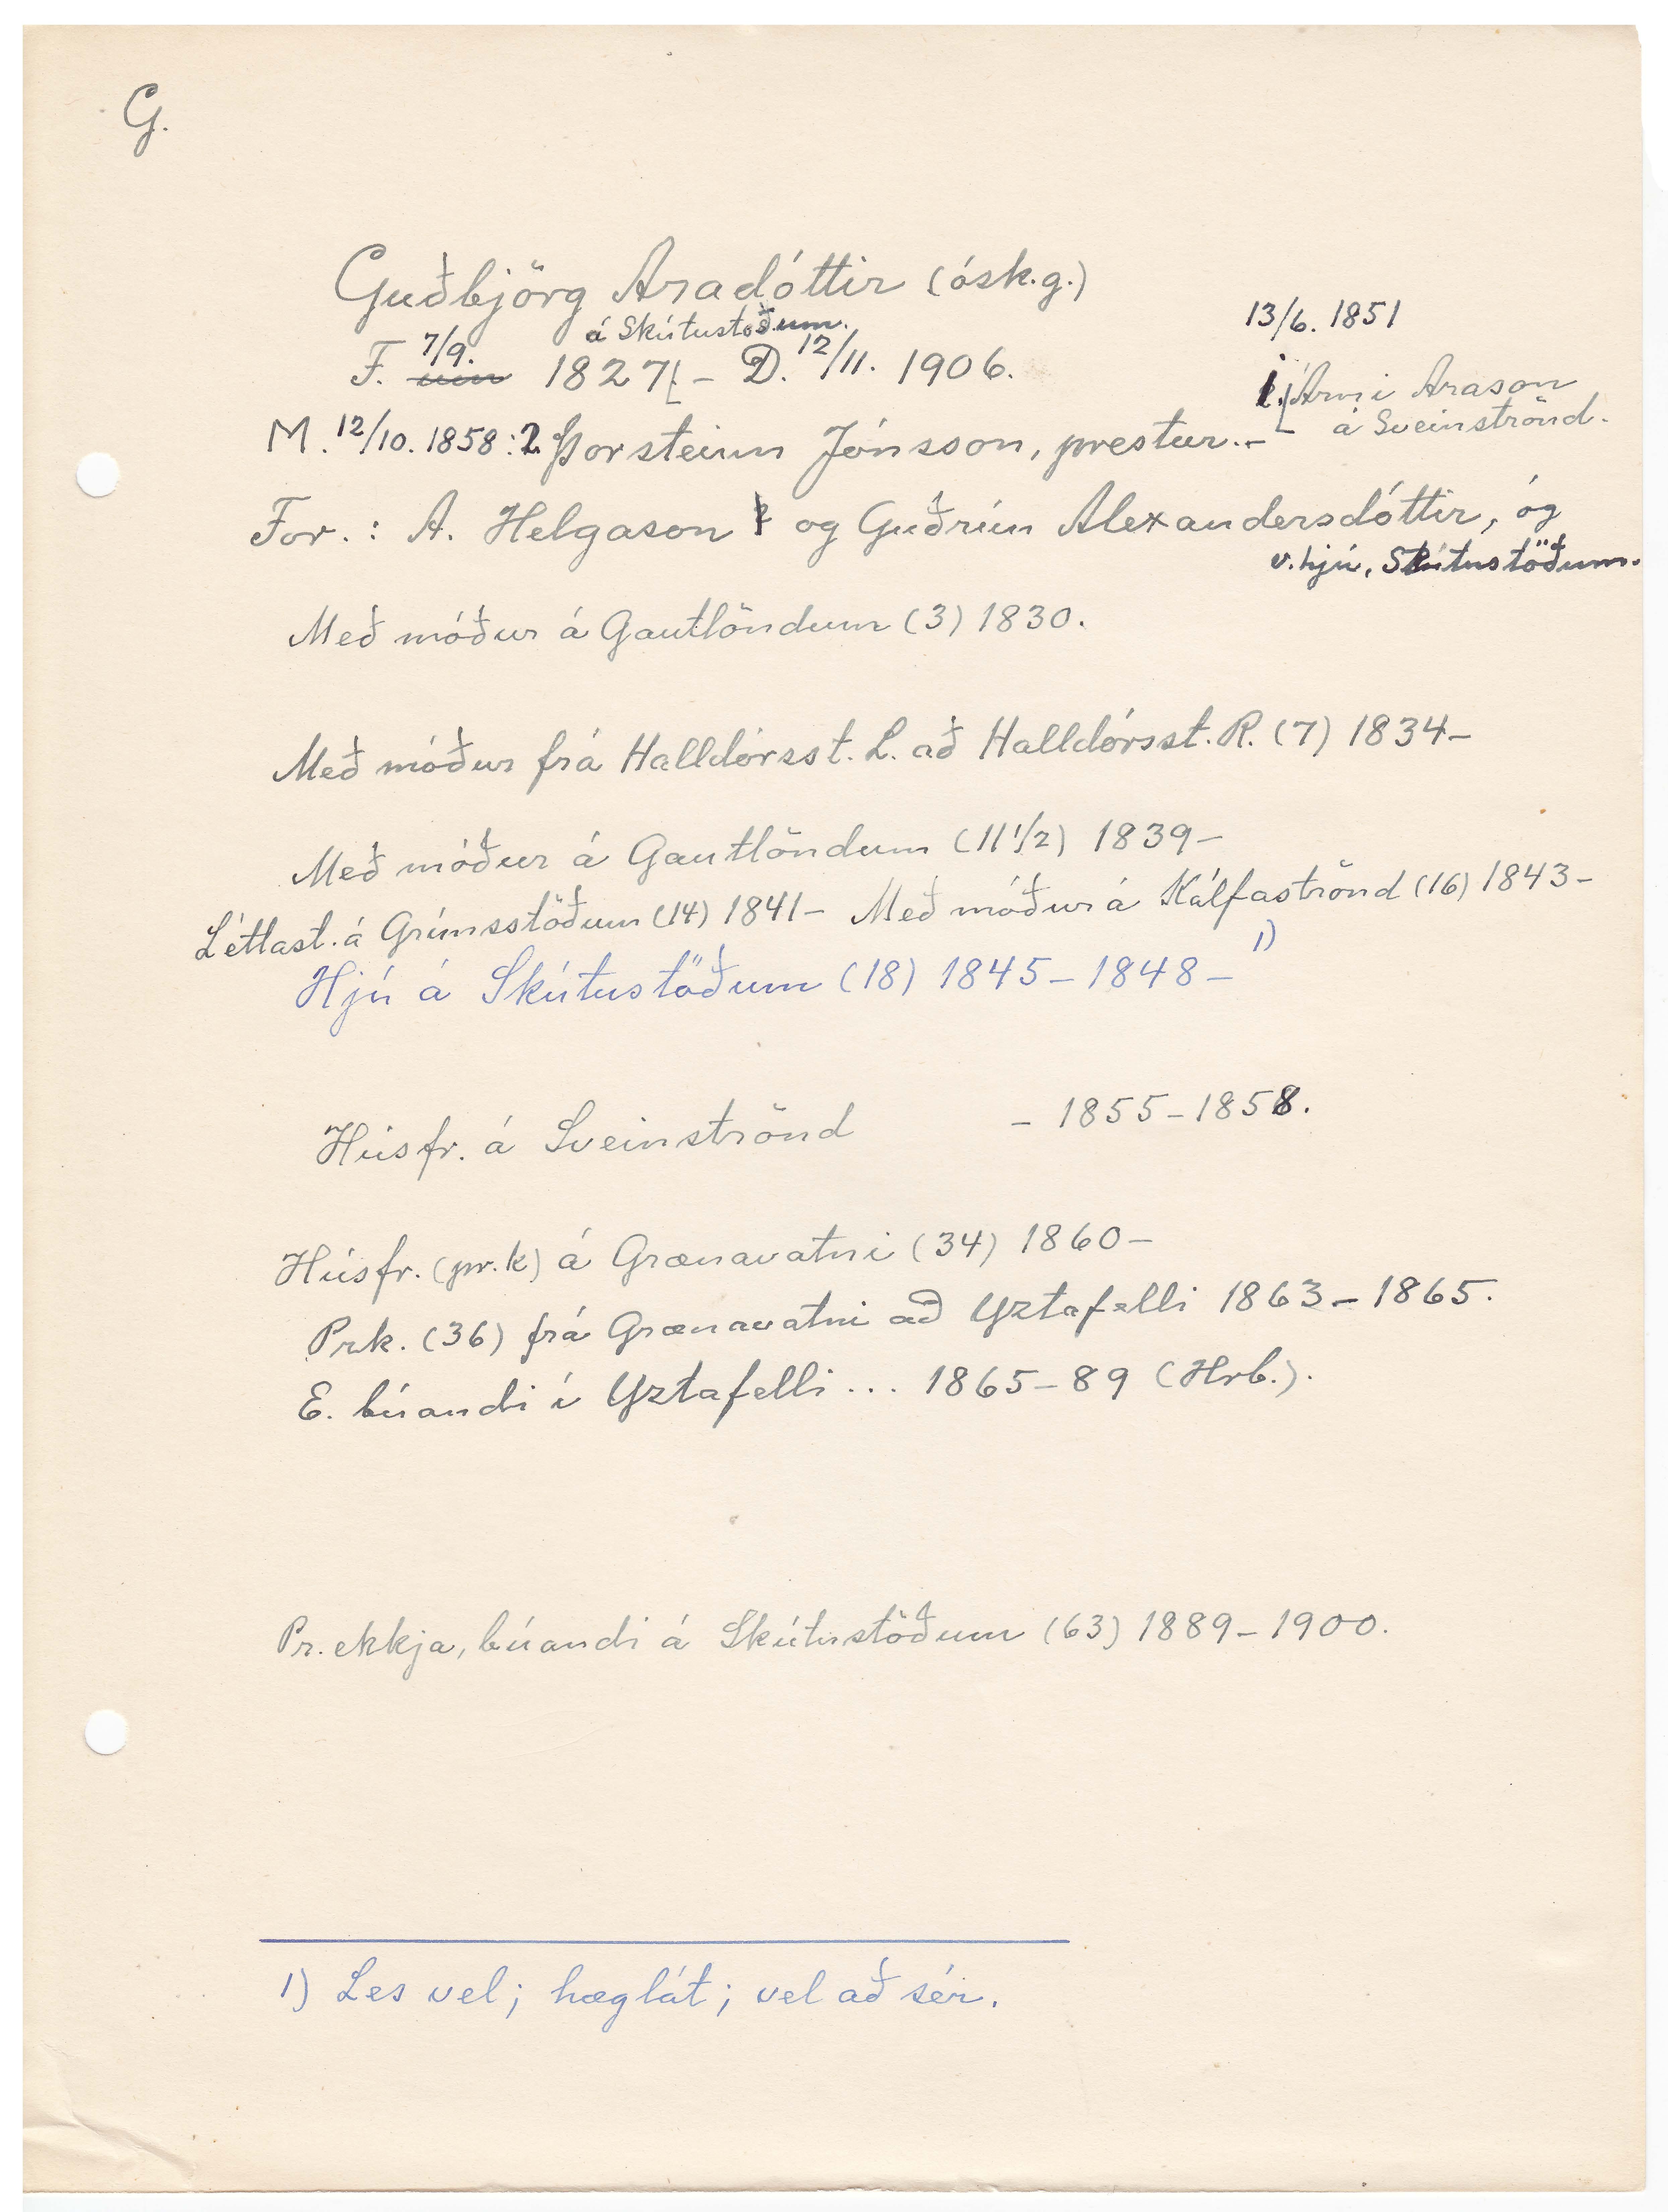 G.
Guðbjörg Aradóttir (ósk.g.)
á Skútustöðum.
13/6. 1851
F. 7/9. 1827 – D. 12/11. 1906.
1. Árni Arason
á Sveinströnd.
M. 12/10. 1858: 2 Þorsteinn Jónsson, prestur. –
For.: A. Helgason og Guðrún Alexandersdóttir, óg
v. hjú, Skútustöðum.
Með móður á Gautlöndum (3) 1830.
Með móður frá Halldórsst. L. að Halldórsst. R. (7) 1834–
Með móður á Gautlöndum (11 1/2) 1839–
Léttast. á Grímsstöðum (14) 1841– Með móður á Kálfaströnd (16) 1843–
Hjú á Skútustöðum (18) 1845–1848– 1)
Húsfr. á Sveinströnd – 1855–1858.
Húsfr. (pr.k) á Grænavatni (34) 1860–
Prk. (36) frá Grænavatni að Yztafelli 1863–1865.
E. búandi í Yztafelli ... 1865–89 (Hrb.).
Pr. ekkja, búandi á Skútustöðum (63) 1889–1900.
1) Les vel; hæglát; vel að sér.